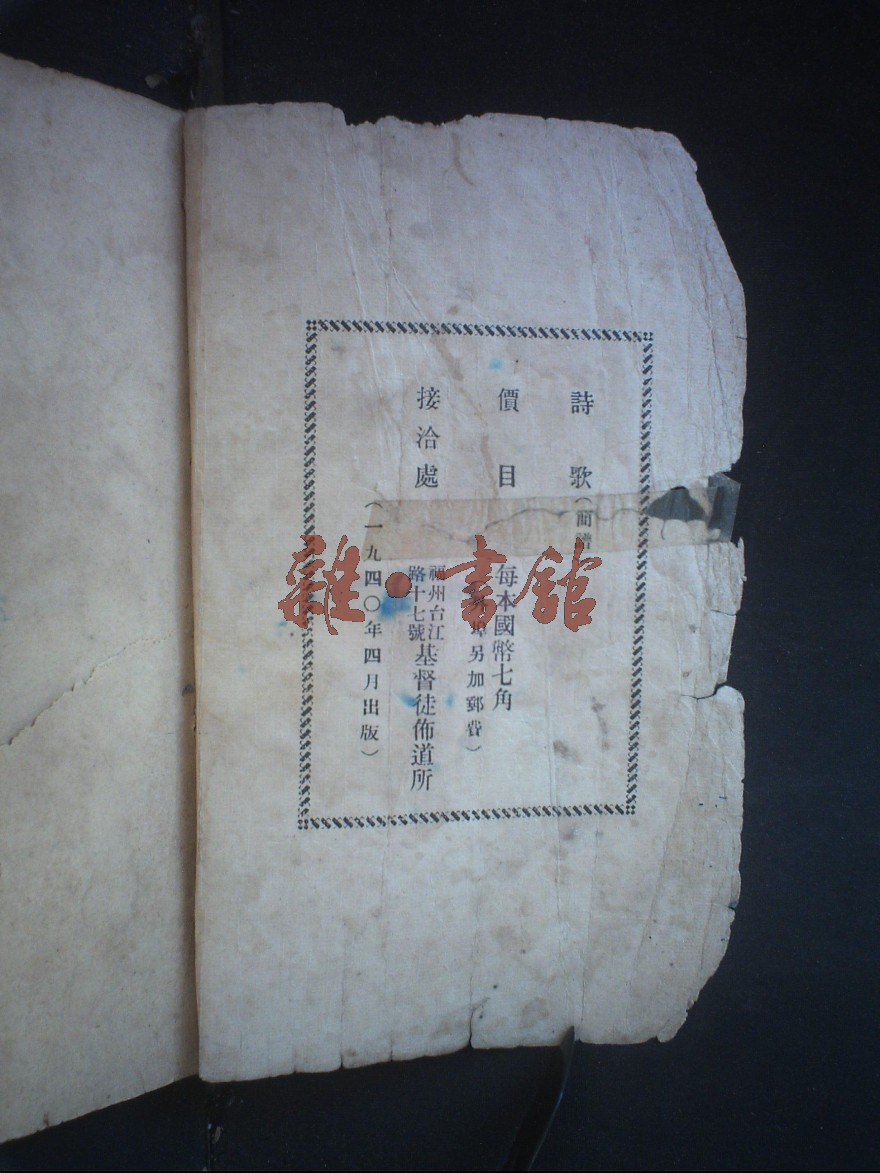 詩歌(簡譜
價目 每本國幣七角
埠另加郵費)
接洽處 福州台江路十七號基督徒佈道所
(一九四〇年四月出版)
雜·書館